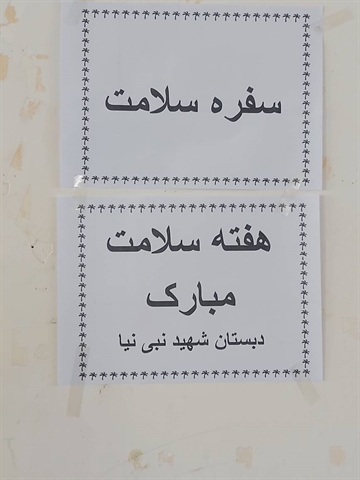 سفره سلامت
هفته سلامت
مبارک
دبستان شهید نبی نیا